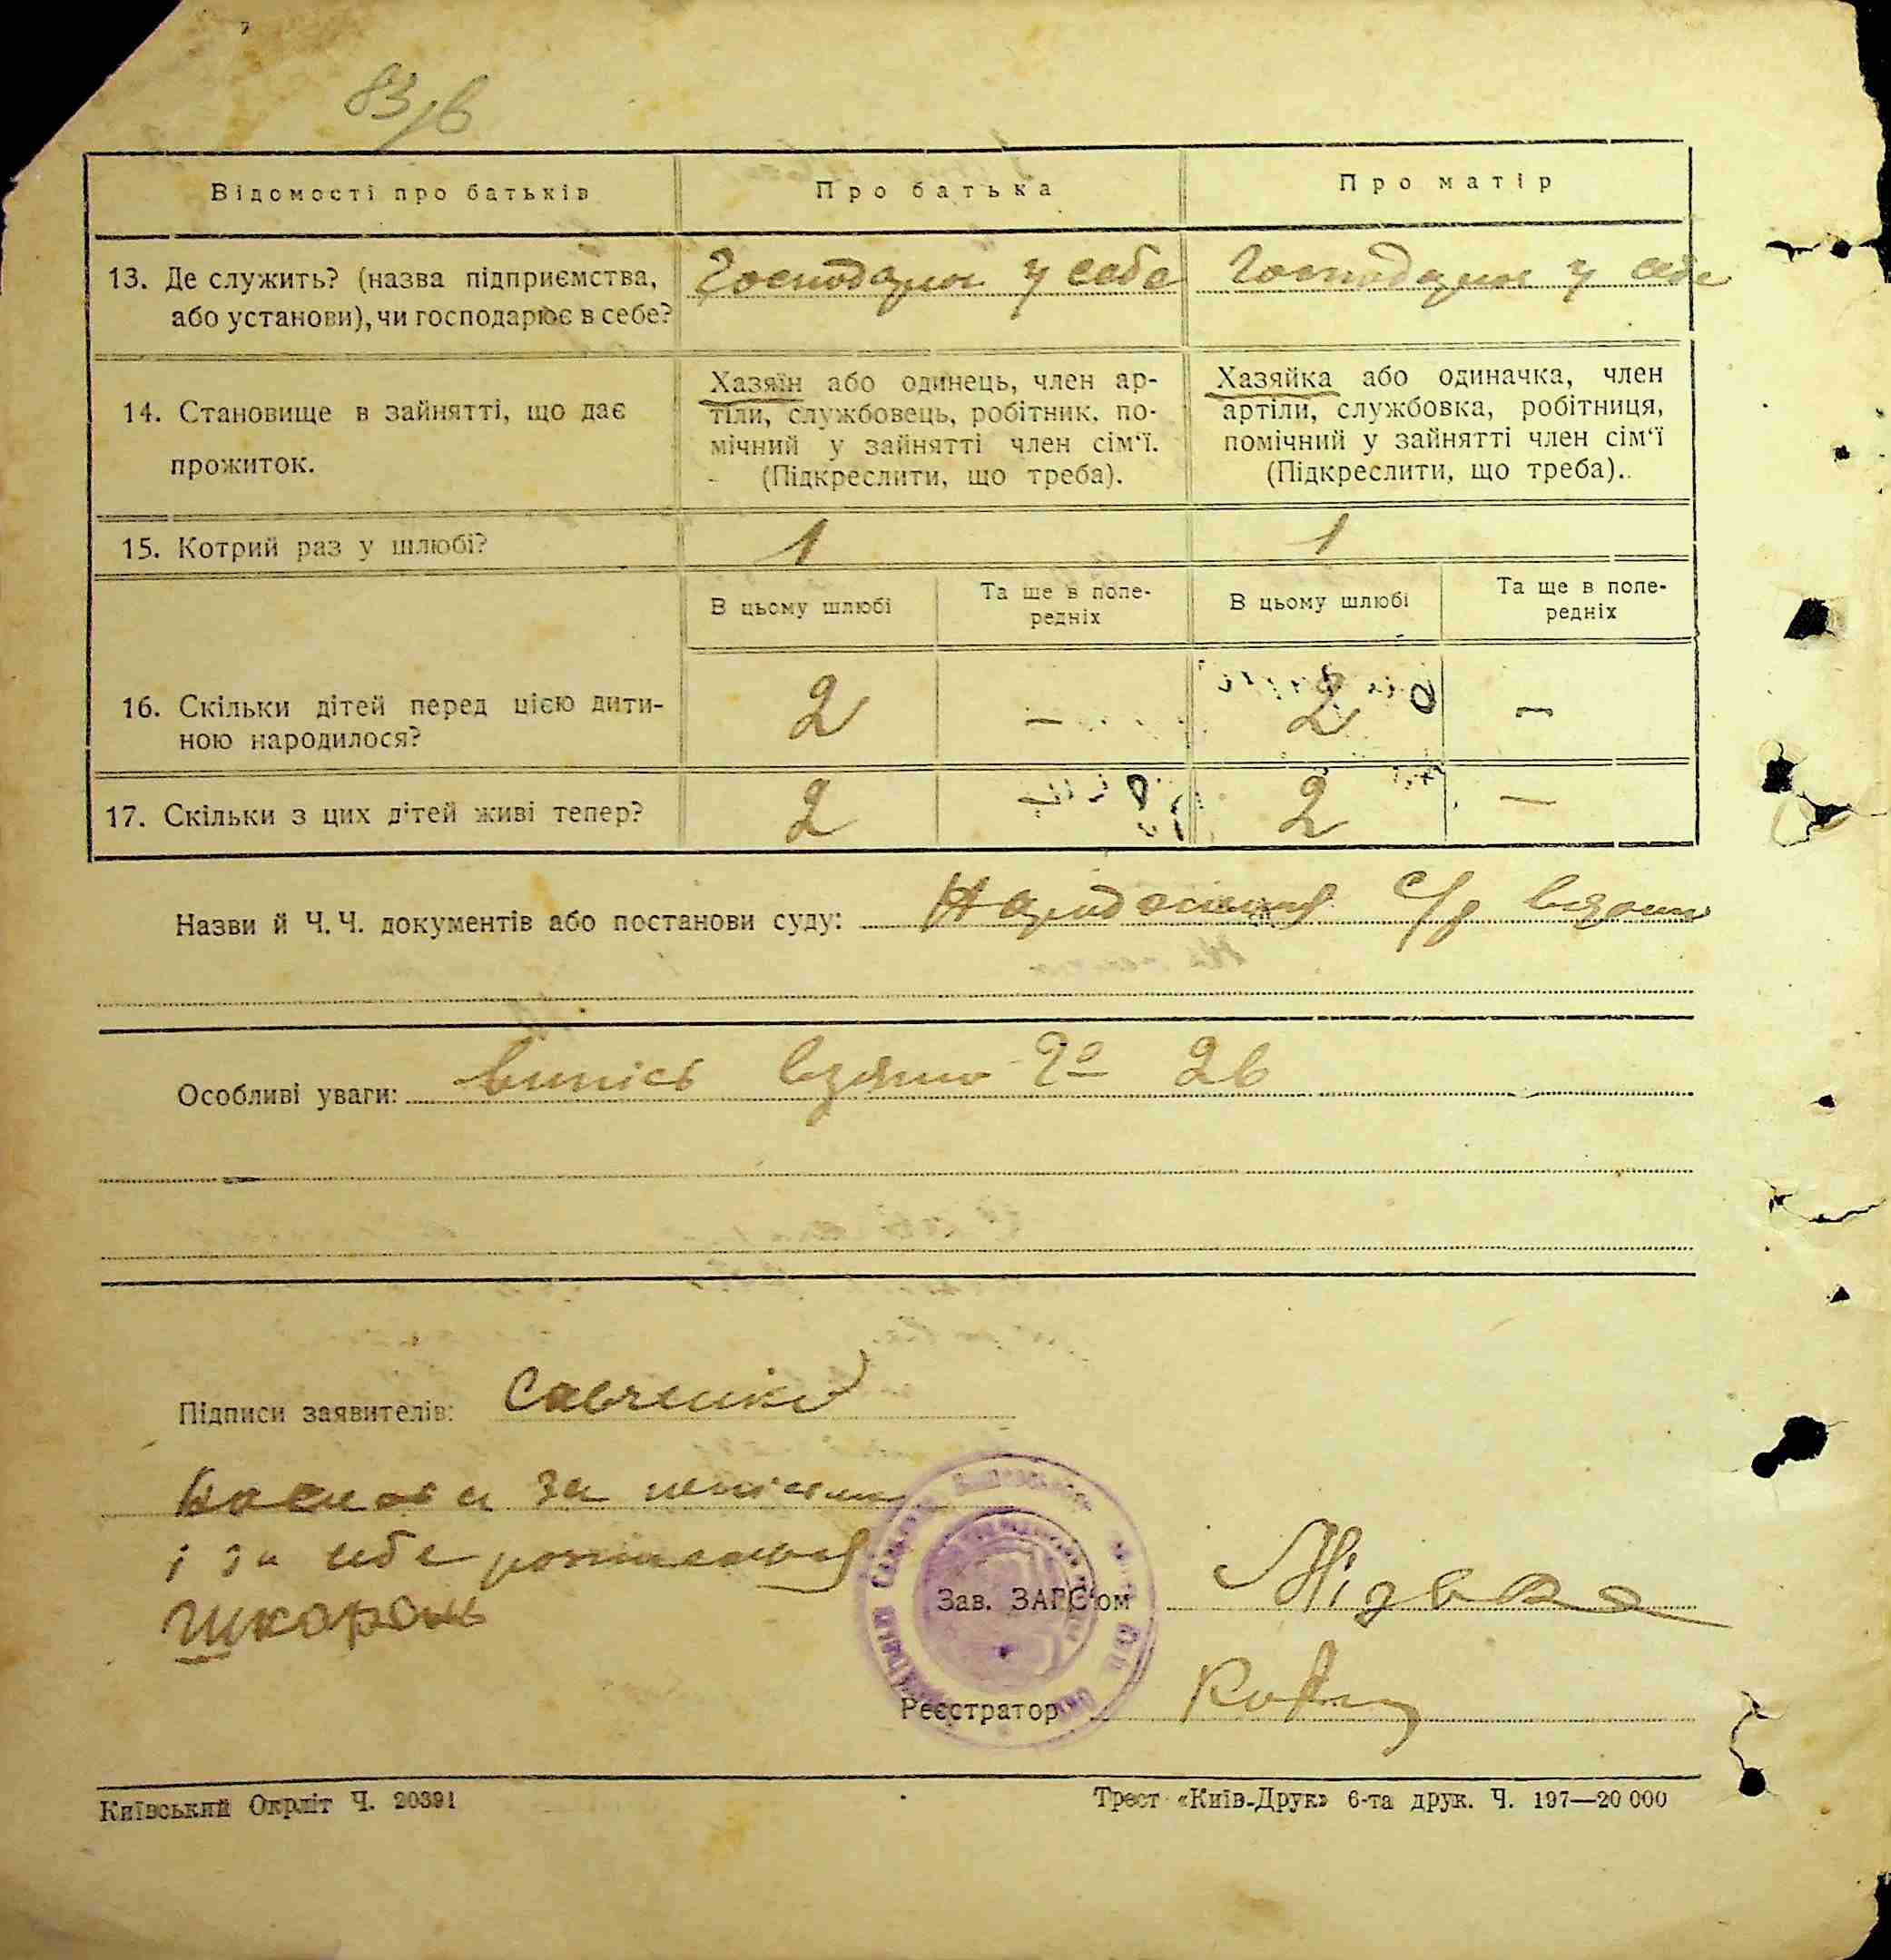 83/в
Відомості про батьків
Про батька
Про матір
13. Де служить? (назва підприємства,
або установи), чи господарює в себе?
Господарює у себе
Господарює у себе
14. Становище в зайнятті, що дає
прожиток.
Хазяїн або одинець, член ар-
тіли, службовець, робітник, по-
мічний у зайнятті член сім'ї.
(Підкреслити, що треба).
Хазяйка або одиначка, член
артіли, службовка, робітниця,
помічний у зайнятті член сім'ї
(Підкреслити, що треба).
15. Котрий раз у шлюбі?
1
1
В цьому шлюбі
Та ще в попе-
редніх
В цьому шлюбі
Та ще в попе-
редніх
16. Скільки дітей перед цією дити-
ною народилося?
2
—
2
—
17. Скільки з цих дітей живі тепер?
2
—
2
—
Назви й Ч. Ч. документів або постанови суду:
с/р
Особливі уваги: випись взято
Підписи заявителів: Савченко
за
і за себе
Шкорань
Зав. ЗАГС'ом
Реєстратор
Київський Окрліт Ч. 20391
Трест «Київ-Друк» 6-та друк. Ч. 197—20 000